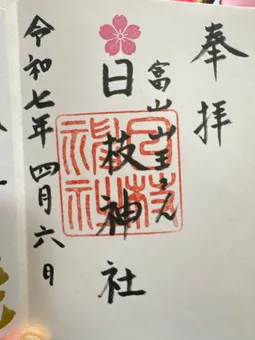 奉拝
富山山王さん
日枝神社
日枝神社
令和七年四月六日